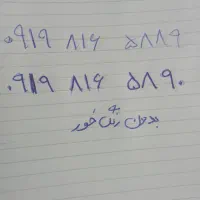 ۰۹۱۹ ۸۱۶ ۵۸۸۹
۰۹۱۹ ۸۱۶ ۵۸۹۰
بدون زنگ خور